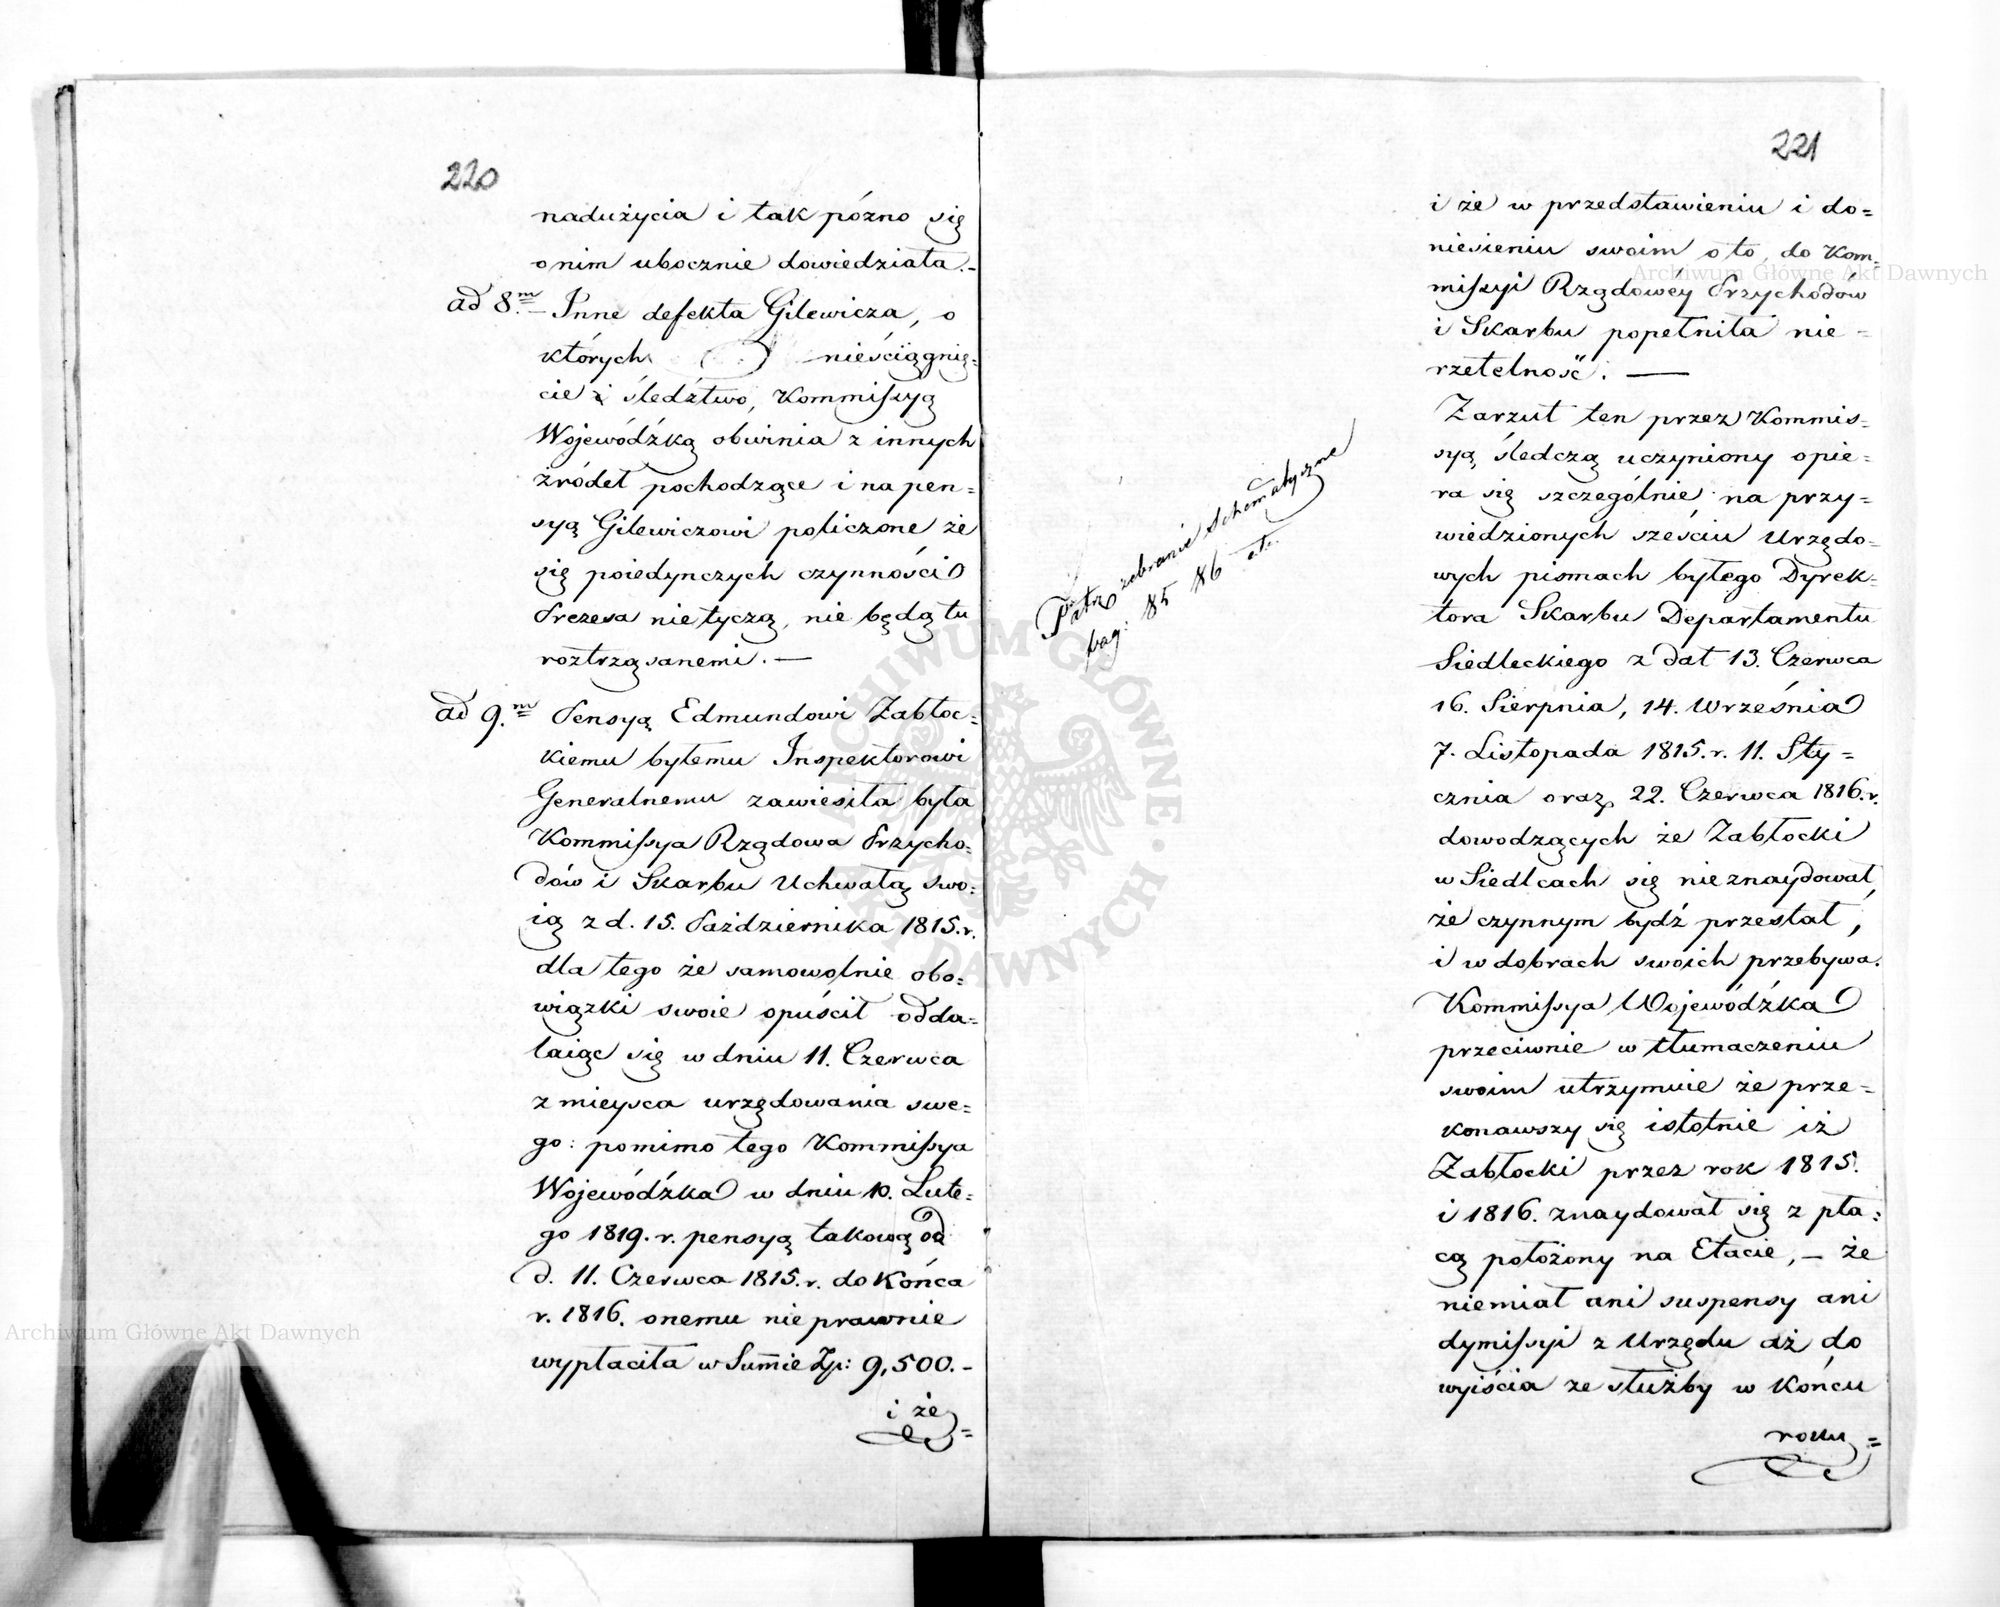 220
nadużycia i tak pózno się
o nim ubocznie dowiedziała.-
ad 8.m Inne defekta Gilewicza, o
których nieściągnię=
cie i śledztwo, Kommissyą
Wojewódźką obwinia z innych
źródeł pochodzące i na pen=
syą Gilewiczowi policzone że
się poiedynczych czynności
Prezesa nie tyczą, nie będą tu
roztrząsanemi. —
ad 9.m Pensyą Edmundowi Zabłoc=
kiemu byłemu Inspektorowi
Generalnemu zawiesiła była
Kommissya Rządowa Przycho=
dów i Skarbu Uchwałą swo=
ią z d. 15. Października 1815. r.
dla tego że samowolnie obo=
wiązki swoie opuścił odda=
laiąc się w dniu 11. Czerwca
z mieysca urzędowania swe=
go: pomimo tego Kommissya
Wojewódźka w dniu 10. Lute=
go 1819. r. pensyą takową od
d. 11. Czerwca 1815. r. do Końca
r. 1816. onemu nie prawnie
wypłaciła w Summie Zp: 9,500.-
i że=
221
i że w przedstawieniu i do=
niesieniu swoim o to, do Kom=
missyi Rządowey Przychodów
i Skarbu popełniła nie=
rzetelność. —
Zarzut ten przez Kommis=
syą śledczą uczyniony opie=
ra się szczególnie na przy=
wiedzionych sześciu Urzędo=
wych pismach byłego Dyrek=
tora Skarbu Departamentu
Siedleckiego z dat 13. Czerwca
16. Sierpnia, 14. Września
7. Listopada 1815. r. 11. Sty=
cznia oraz 22. Czerwca 1816. r.
dowodzących że Zabłocki
w Siedlcach się nie znaydował,
że czynnym bydź przestał,
i w dobrach swoich przebywa.
Kommissya Wojewódźka
przeciwnie w tłumaczeniu
swoim utrzymuie że prze=
konawszy się istotnie iż
Zabłocki przez rok 1815.
i 1816. znaydował się z pła=
cą położony na Etacie, — że
niemiał ani suspensy ani
dymissyi z Urzędu aż do
wyiścia ze służby w Końcu
roku=
Patrz zebranie Schematyczne
pag: 85 86 etc.
Archiwum Główne Akt Dawnych
Archiwum Główne Akt Dawnych
ARCHIWUM GŁÓWNE AKT DAWNYCH